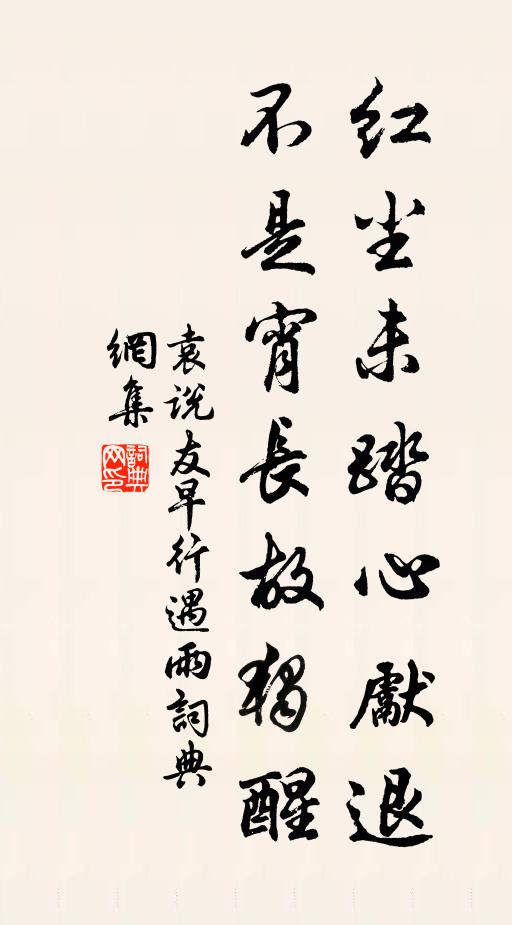 红尘未踏心獻退
不是宵長故獨醒
袁说友早行遇雨詞典
網集
詞典
网印